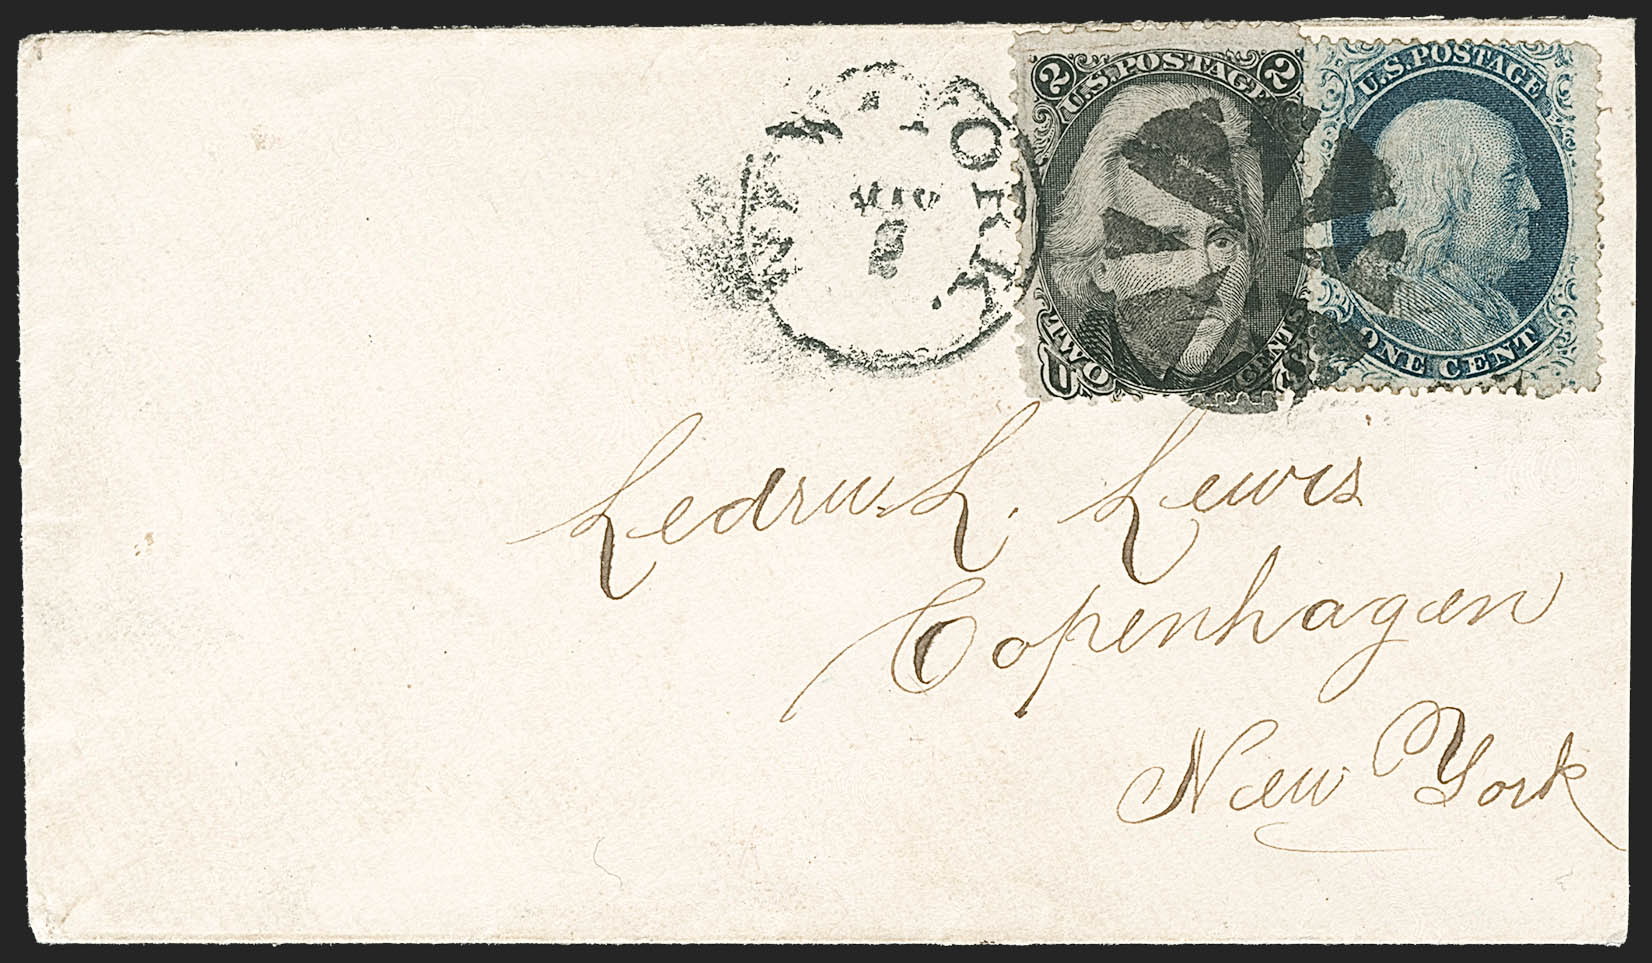 NEW YORK.
2 U.S. POSTAGE 2
TWO CENTS
U.S. POSTAGE
ONE CENT
Ledru. L. Lewis
Copenhagen
New York